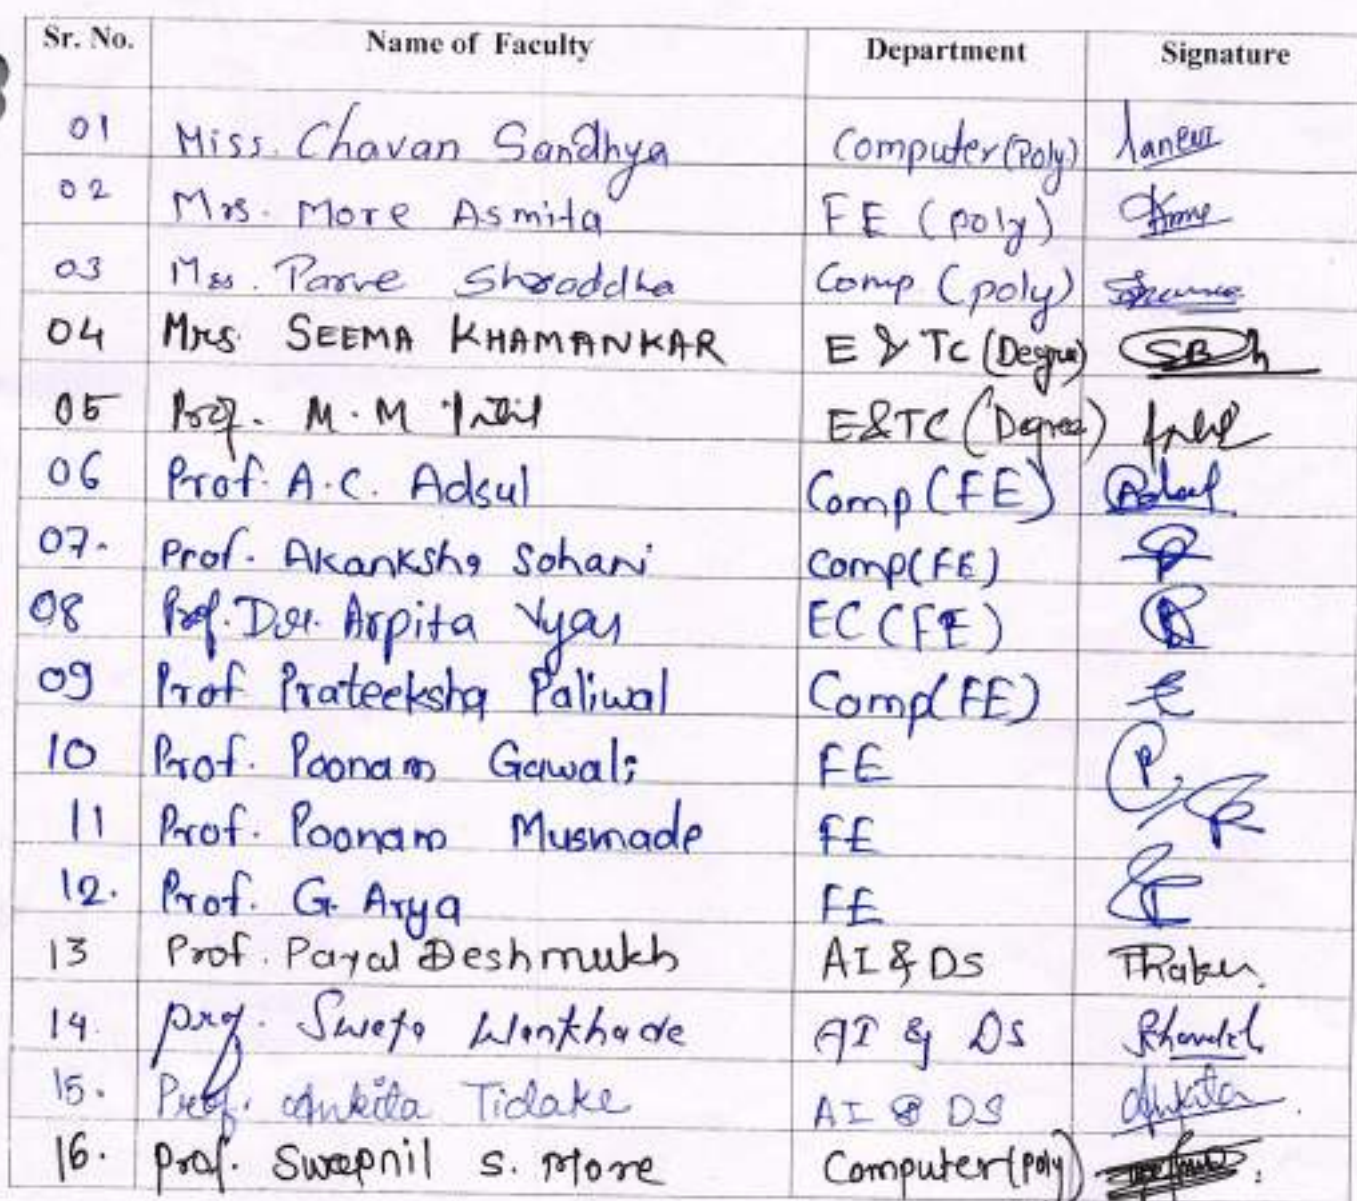 Sr. No. Name of Faculty Department Signature
01 Miss. Chavan Sandhya Computer (Poly)
02 Mrs. More Asmita FE (poly)
03 Mss. Parve Shraddha Comp (poly)
04 Mrs. SEEMA KHAMANKAR E & TC (Degree) SB
05 Prof. M. M Patil E&TC (Degree)
06 Prof. A.C. Adsul Comp (FE) Adsul
07. Prof. Akanksha Sohani Comp(FE)
08 Prof. Dr. Arpita Vyas EC (FE)
09 Prof Prateeksha Paliwal Comp(FE)
10 Prof. Poonam Gawali FE P
11 Prof. Poonam Musmade FE
12. Prof. G. Arya FE
13 Prof. Payal Deshmukh AI & DS
14. Prof. Sweta Wankhade AI & DS
15. Prof. Ankita Tidake AI & DS Ankita
16. Prof. Swapnil S. More Computer (poly)